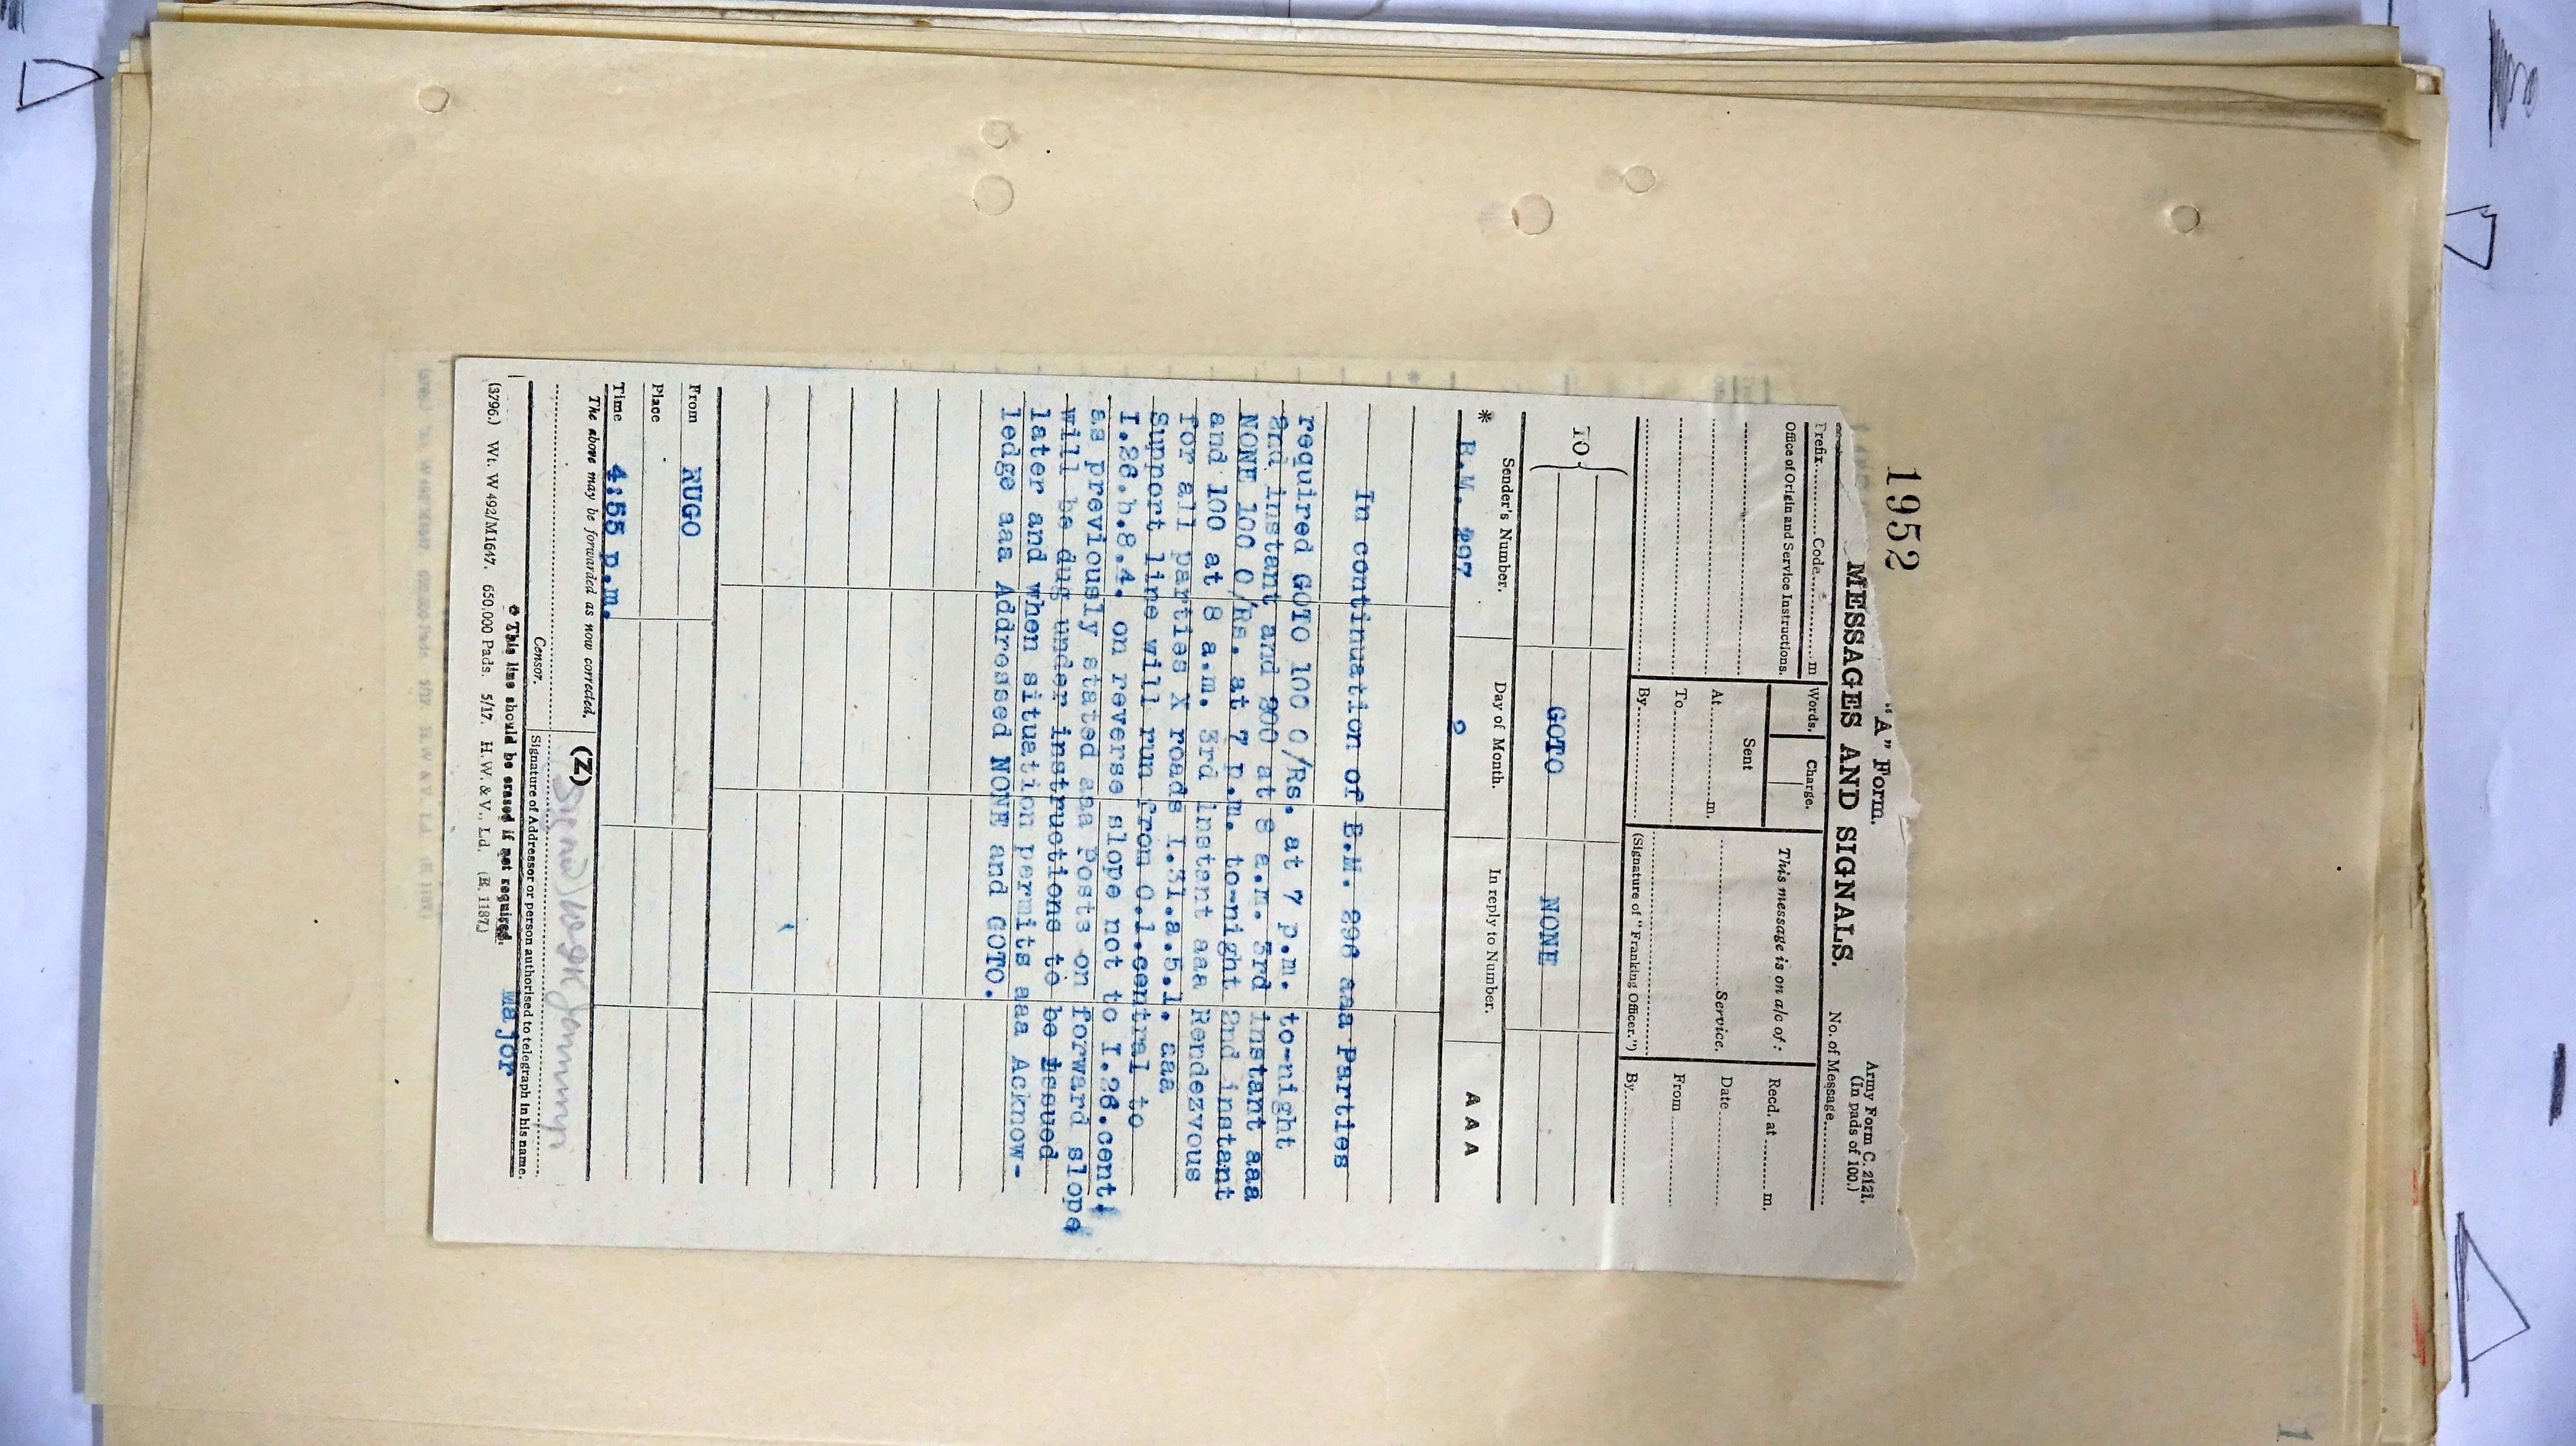 1952
"A" Form.
Army Form C. 2121.
(In pads of 100.)
MESSAGES AND SIGNALS.
No. of Message............
Prefix............Code............m
Words.
Charge.
This message is on a/c of:
Recd. at............m.
Office of Origin and Service Instructions.
Sent
At............m.
............Service.
Date............
To............
From............
By............
(Signature of "Franking Officer.")
By............
TO
GOTO
NONE
Sender's Number.
Day of Month.
In reply to Number.
A A A
* B.M. 297
2
In continuation of B.M. 296 aaa Parties
required GOTO 100 O/Rs. at 7 p.m. to-night
2nd instant and 200 at 8 a.m. 3rd instant aaa
NONE 100 O/Rs. at 7 p.m. to-night 2nd instant
and 100 at 8 a.m. 3rd instant aaa Rendezvous
for all parties X roads I.31.a.5.1. aaa
Support line will run from O.1.central to
I.26.b.8.4. on reverse slope not to I.26.cent.
as previously stated aaa Posts on forward slope
will be dug under instructions to be issued
later and when situation permits aaa Acknow-
ledge aaa Addressed NONE and GOTO.
From RUGO
Place
Time 4:55 p.m.
The above may be forwarded as now corrected.
(Z)
Signed)
Censor.
Signature of Addressor or person authorised to telegraph in his name.
* This line should be erased if not required.
Major
(3796.) Wt. W 492/M1647. 650,000 Pads. 5/17. H.W. & V., Ld. (E. 1187.)